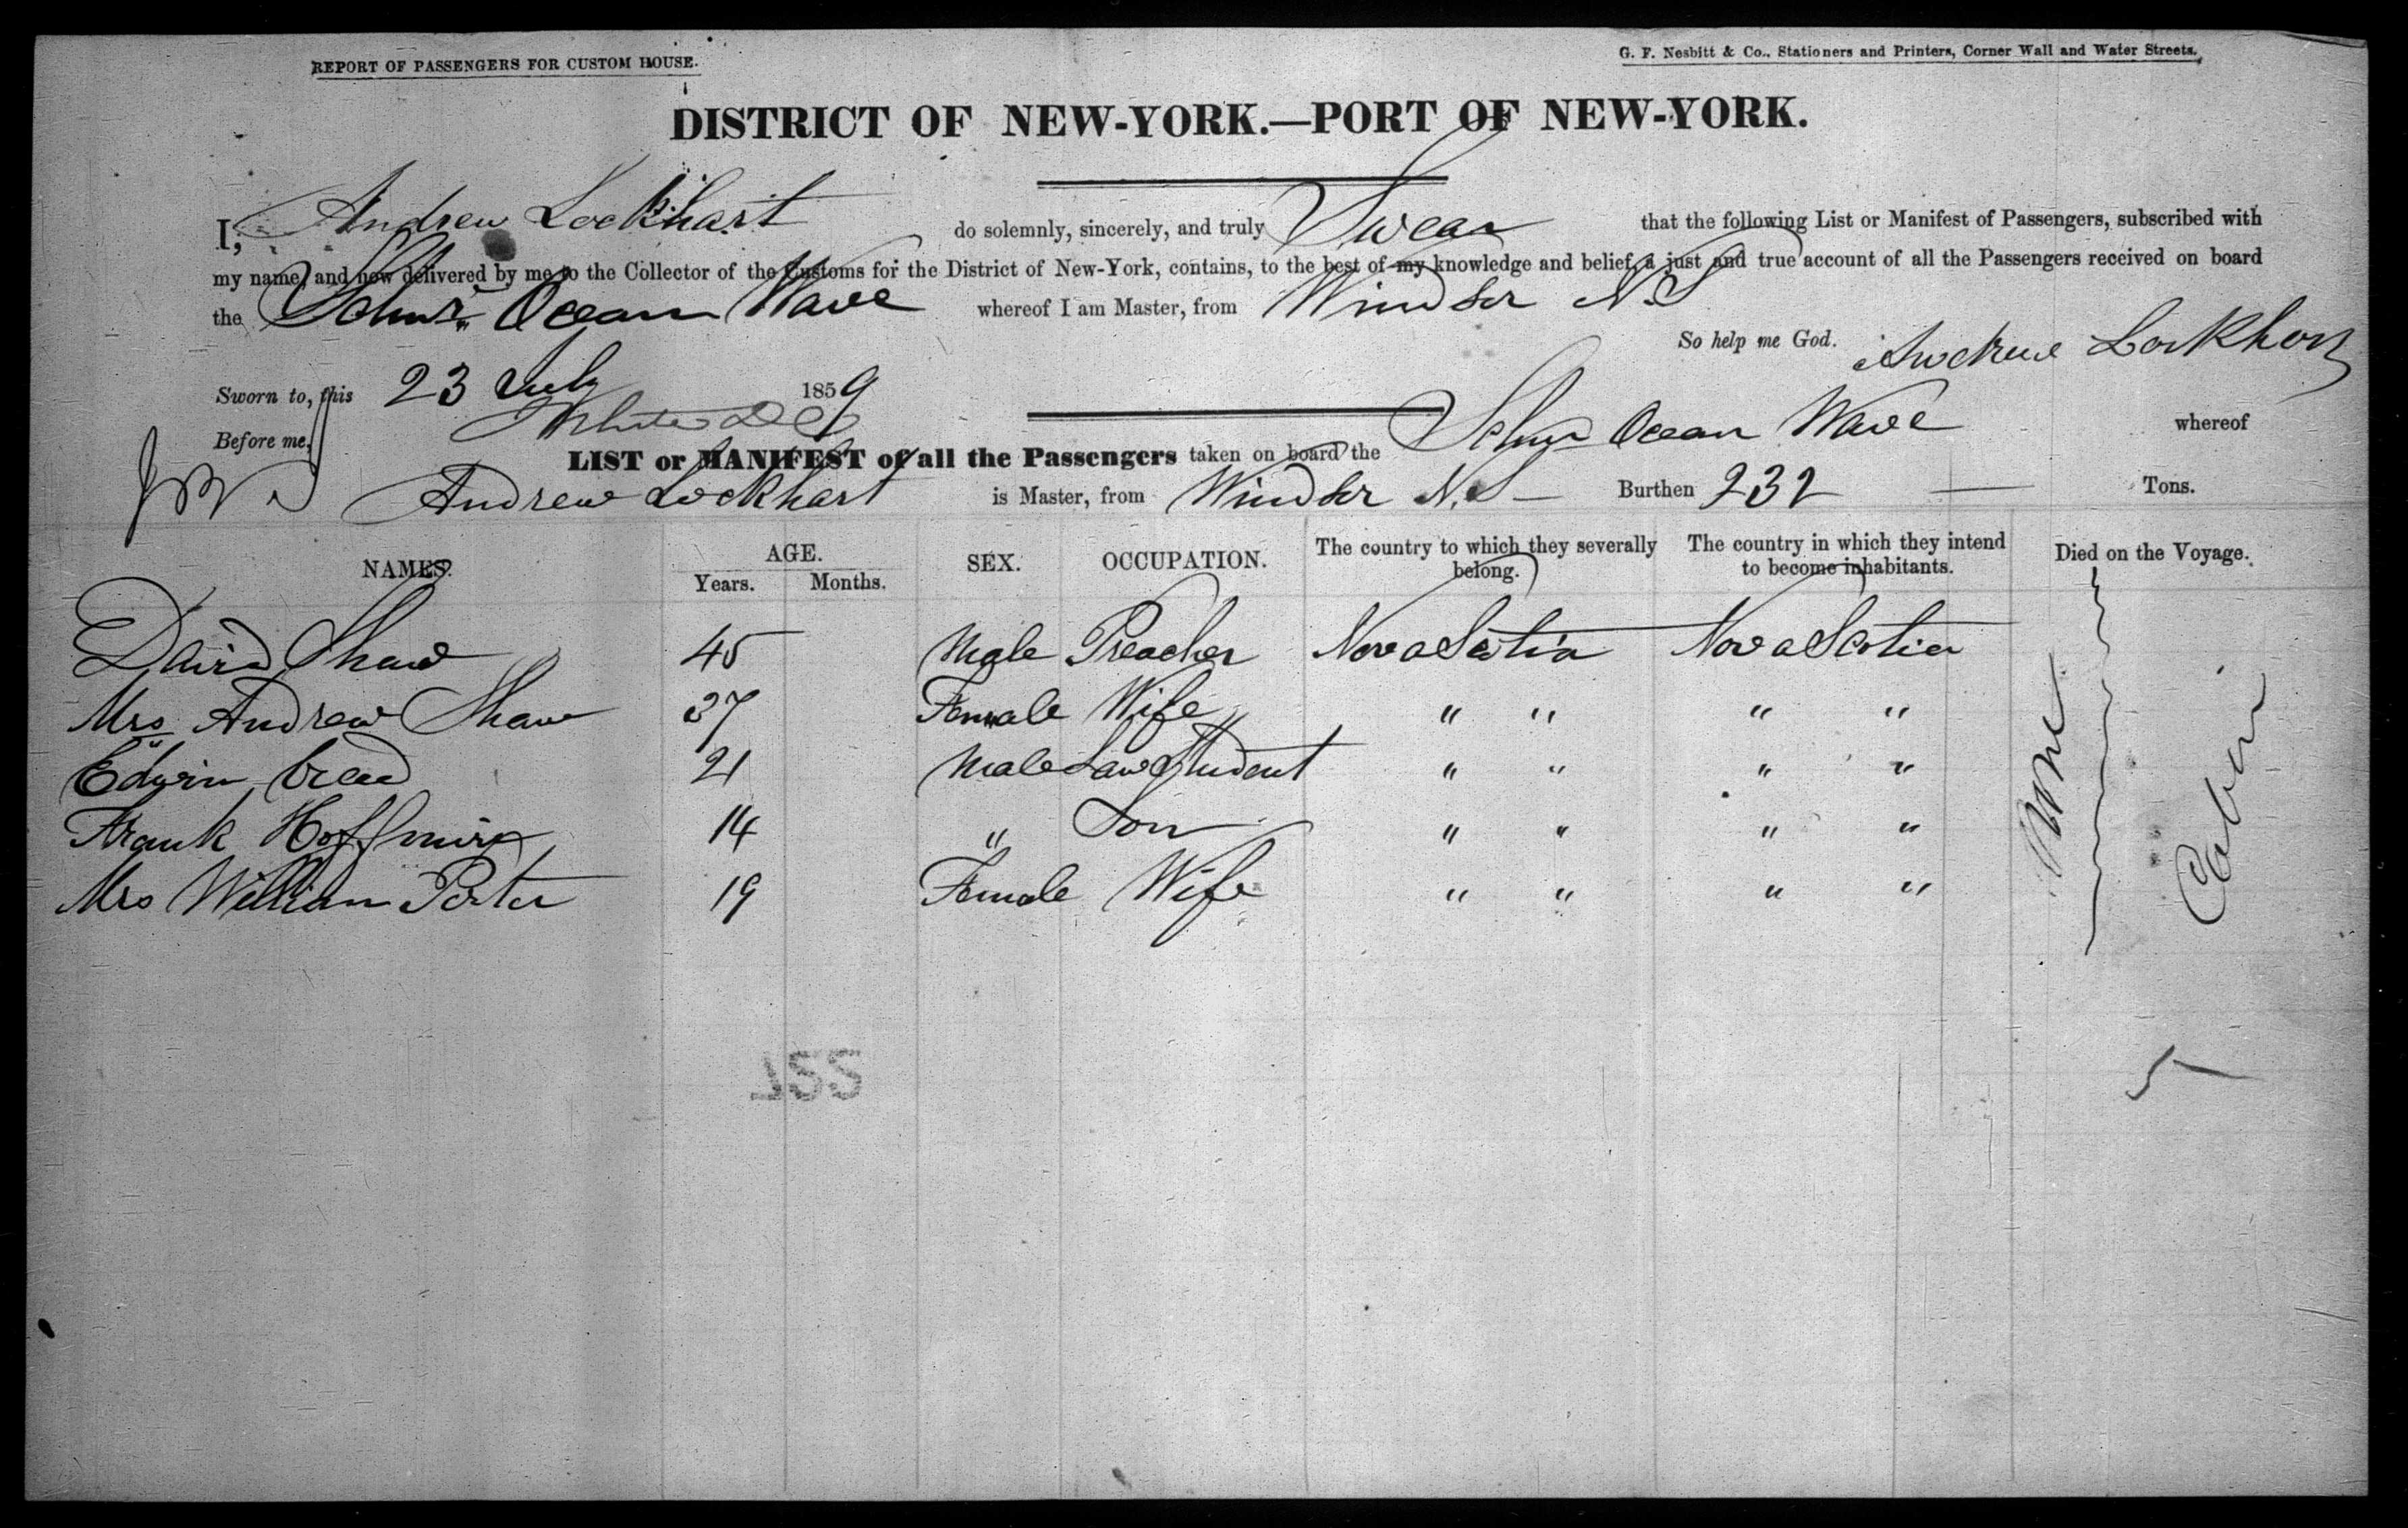 REPORT OF PASSENGERS FOR CUSTOM HOUSE.
G. F. Nesbitt & Co., Stationers and Printers, Corner Wall and Water Streets.
DISTRICT OF NEW-YORK.—PORT OF NEW-YORK.
I, Andrew Lockhart do solemnly, sincerely, and truly Swear that the following List or Manifest of Passengers, subscribed with
my name, and now delivered by me to the Collector of the Customs for the District of New-York, contains, to the best of my knowledge and belief, a just and true account of all the Passengers received on board
the Schnr. Ocean Wave whereof I am Master, from Windsor N.S
So help me God. Andrew Lockhart
Sworn to, this 23 July 1859
Before me,
LIST or MANIFEST of all the Passengers taken on board the Schnr Ocean Wave whereof
Andrew Lockhart is Master, from Windsor N.S — Burthen 232 — Tons.
NAMES. AGE. Years. Months. SEX. OCCUPATION. The country to which they severally belong. The country in which they intend to become inhabitants. Died on the Voyage.
David Shaw 45 Male Preacher Nova Scotia Nova Scotia
Mrs Andrew Shaw 37 Female Wife " " " "
Edwin 21 Male Law Student " " " "
Frank 14 " Son " " " "
Mrs William Porter 19 Female Wife " " " "
None
Cabin
5